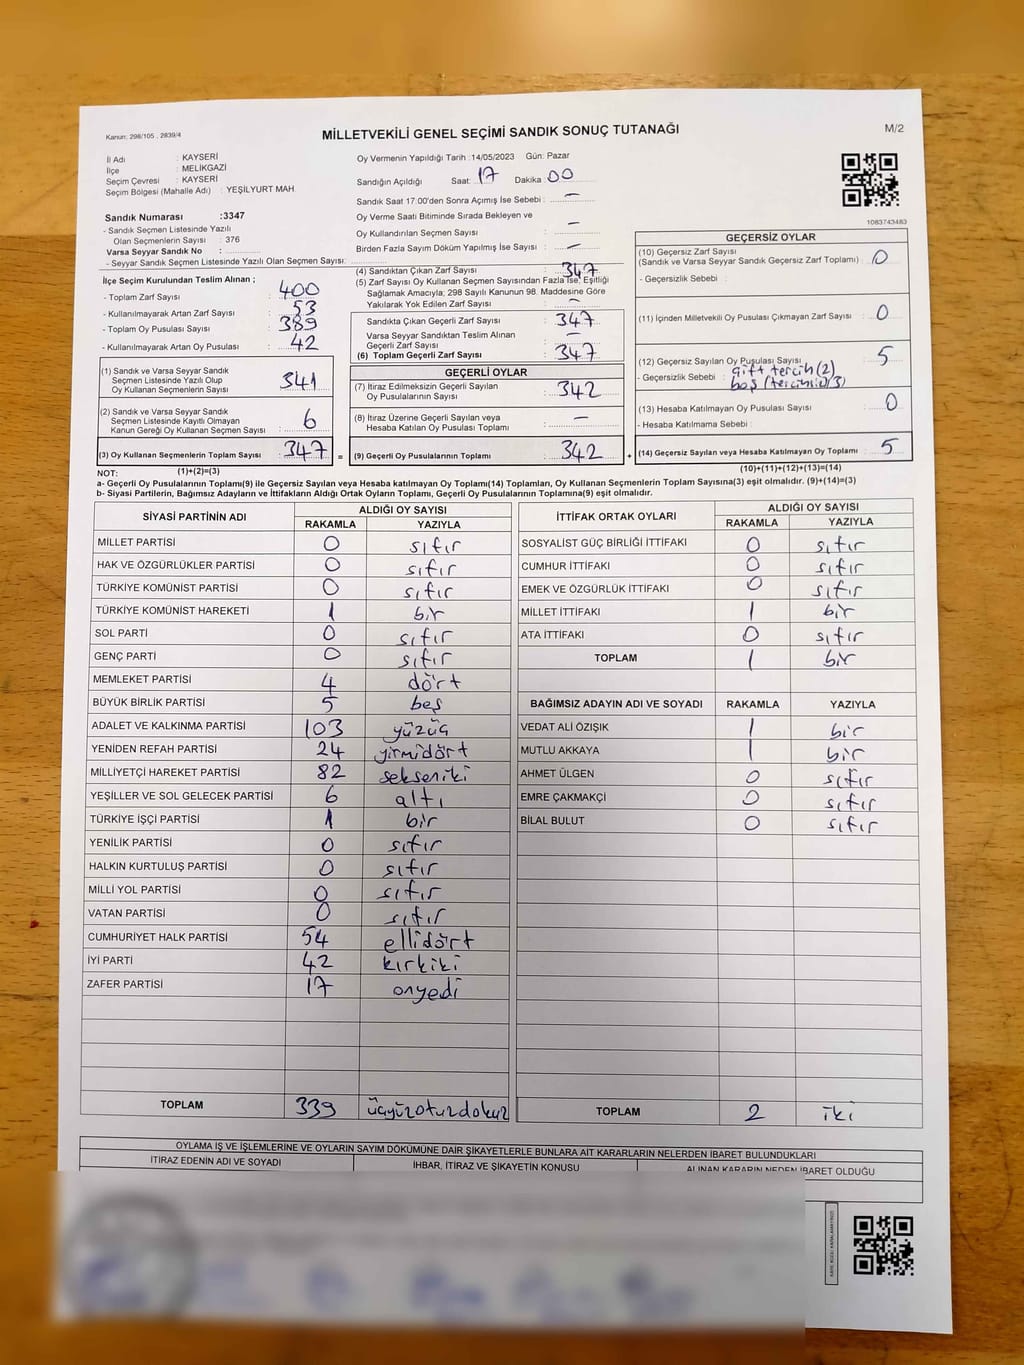 Kanun: 298/105 . 2839/4
MİLLETVEKİLİ GENEL SEÇİMİ SANDIK SONUÇ TUTANAĞI
M/2
İl Adı : KAYSERİ
İlçe : MELİKGAZİ
Seçim Çevresi : KAYSERİ
Seçim Bölgesi (Mahalle Adı) : YEŞİLYURT MAH.
Sandık Numarası :3347
- Sandık Seçmen Listesinde Yazılı
Olan Seçmenlerin Sayısı : 376
Varsa Seyyar Sandık No :
- Seyyar Sandık Seçmen Listesinde Yazılı Olan Seçmen Sayısı:
Oy Vermenin Yapıldığı Tarih :14/05/2023 Gün: Pazar
Sandığın Açıldığı Saat: 17 Dakika: 00
Sandık Saat 17.00'den Sonra Açımış İse Sebebi : —
Oy Verme Saati Bitiminde Sırada Bekleyen ve
Oy Kullandırılan Seçmen Sayısı : —
Birden Fazla Sayım Döküm Yapılmış İse Sayısı : —
1083743483
İlçe Seçim Kurulundan Teslim Alınan ;
- Toplam Zarf Sayısı : 400
- Kullanılmayarak Artan Zarf Sayısı : 53
- Toplam Oy Pusulası Sayısı : 389
- Kullanılmayarak Artan Oy Pusulası : 42
(1) Sandık ve Varsa Seyyar Sandık
Seçmen Listesinde Yazılı Olup
Oy Kullanan Seçmenlerin Sayısı : 341
(2) Sandık ve Varsa Seyyar Sandık
Seçmen Listesinde Kayıtlı Olmayan
Kanun Gereği Oy Kullanan Seçmen Sayısı : 6
(3) Oy Kullanan Seçmenlerin Toplam Sayısı : 347 =
(4) Sandıktan Çıkan Zarf Sayısı : 347
(5) Zarf Sayısı Oy Kullanan Seçmen Sayısından Fazla İse, Eşitliği
Sağlamak Amacıyla; 298 Sayılı Kanunun 98. Maddesine Göre
Yakılarak Yok Edilen Zarf Sayısı : —
Sandıkta Çıkan Geçerli Zarf Sayısı : 347
Varsa Seyyar Sandıktan Teslim Alınan
Geçerli Zarf Sayısı : —
(6) Toplam Geçerli Zarf Sayısı : 347
GEÇERLİ OYLAR
(7) İtiraz Edilmeksizin Geçerli Sayılan
Oy Pusulalarının Sayısı : 342
(8) İtiraz Üzerine Geçerli Sayılan veya
Hesaba Katılan Oy Pusulası Toplamı : —
(9) Geçerli Oy Pusulalarının Toplamı : 342 +
GEÇERSİZ OYLAR
(10) Geçersiz Zarf Sayısı
(Sandık ve Varsa Seyyar Sandık Geçersiz Zarf Toplamı) : 0
- Geçersizlik Sebebi :
(11) İçinden Milletvekili Oy Pusulası Çıkmayan Zarf Sayısı : 0
(12) Geçersiz Sayılan Oy Pusulası Sayısı : 5
- Geçersizlik Sebebi : çift tercih(2)
boş (3)
(13) Hesaba Katılmayan Oy Pusulası Sayısı : 0
- Hesaba Katılmama Sebebi :
(14) Geçersiz Sayılan veya Hesaba Katılmayan Oy Toplamı : 5
NOT: (1)+(2)=(3) (10)+(11)+(12)+(13)=(14)
a- Geçerli Oy Pusulalarının Toplamı(9) ile Geçersiz Sayılan veya Hesaba Katılmayan Oy Toplamı(14) Toplamları, Oy Kullanan Seçmenlerin Toplam Sayısına(3) eşit olmalıdır. (9)+(14)=(3)
b- Siyasi Partilerin, Bağımsız Adayların ve İttifakların Aldığı Ortak Oyların Toplamı, Geçerli Oy Pusulalarının Toplamına(9) eşit olmalıdır.
SİYASİ PARTİNİN ADI ALDIĞI OY SAYISI
RAKAMLA YAZIYLA
MİLLET PARTİSİ 0 sıfır
HAK VE ÖZGÜRLÜKLER PARTİSİ 0 sıfır
TÜRKİYE KOMÜNİST PARTİSİ 0 sıfır
TÜRKİYE KOMÜNİST HAREKETİ 1 bir
SOL PARTİ 0 sıfır
GENÇ PARTİ 0 sıfır
MEMLEKET PARTİSİ 4 dört
BÜYÜK BİRLİK PARTİSİ 5 beş
ADALET VE KALKINMA PARTİSİ 103 yüzüç
YENİDEN REFAH PARTİSİ 24 yirmidört
MİLLİYETÇİ HAREKET PARTİSİ 82 sekseniki
YEŞİLLER VE SOL GELECEK PARTİSİ 6 altı
TÜRKİYE İŞÇİ PARTİSİ 1 bir
YENİLİK PARTİSİ 0 sıfır
HALKIN KURTULUŞ PARTİSİ 0 sıfır
MİLLİ YOL PARTİSİ 0 sıfır
VATAN PARTİSİ 0 sıfır
CUMHURİYET HALK PARTİSİ 54 ellidört
İYİ PARTİ 42 kırkiki
ZAFER PARTİSİ 17 onyedi
TOPLAM 339 üçyüzotuzdokuz
İTTİFAK ORTAK OYLARI ALDIĞI OY SAYISI
RAKAMLA YAZIYLA
SOSYALİST GÜÇ BİRLİĞİ İTTİFAKI 0 sıfır
CUMHUR İTTİFAKI 0 sıfır
EMEK VE ÖZGÜRLÜK İTTİFAKI 0 sıfır
MİLLET İTTİFAKI 1 bir
ATA İTTİFAKI 0 sıfır
TOPLAM 1 bir
BAĞIMSIZ ADAYIN ADI VE SOYADI RAKAMLA YAZIYLA
VEDAT ALİ ÖZIŞIK 1 bir
MUTLU AKKAYA 1 bir
AHMET ÜLGEN 0 sıfır
EMRE ÇAKMAKÇİ 0 sıfır
BİLAL BULUT 0 sıfır
TOPLAM 2 iki
OYLAMA İŞ VE İŞLEMLERİNE VE OYLARIN SAYIM DÖKÜMÜNE DAİR ŞİKAYETLERLE BUNLARA AİT KARARLARIN NELERDEN İBARET BULUNDUKLARI
İTİRAZ EDENİN ADI VE SOYADI İHBAR, İTİRAZ VE ŞİKAYETİN KONUSU ALINAN KARARIN NEDEN İBARET OLDUĞU